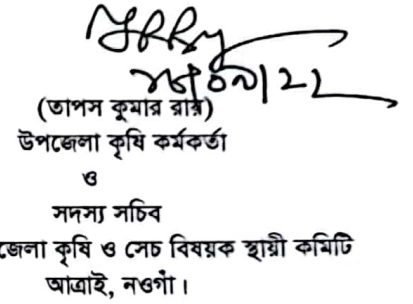 (তাপস কুমার রায়)
উপজেলা কৃষি কর্মকর্তা
ও
সদস্য সচিব
জেলা কৃষি ও সেচ বিষয়ক স্থায়ী কমিটি
আত্রাই, নওগাঁ।